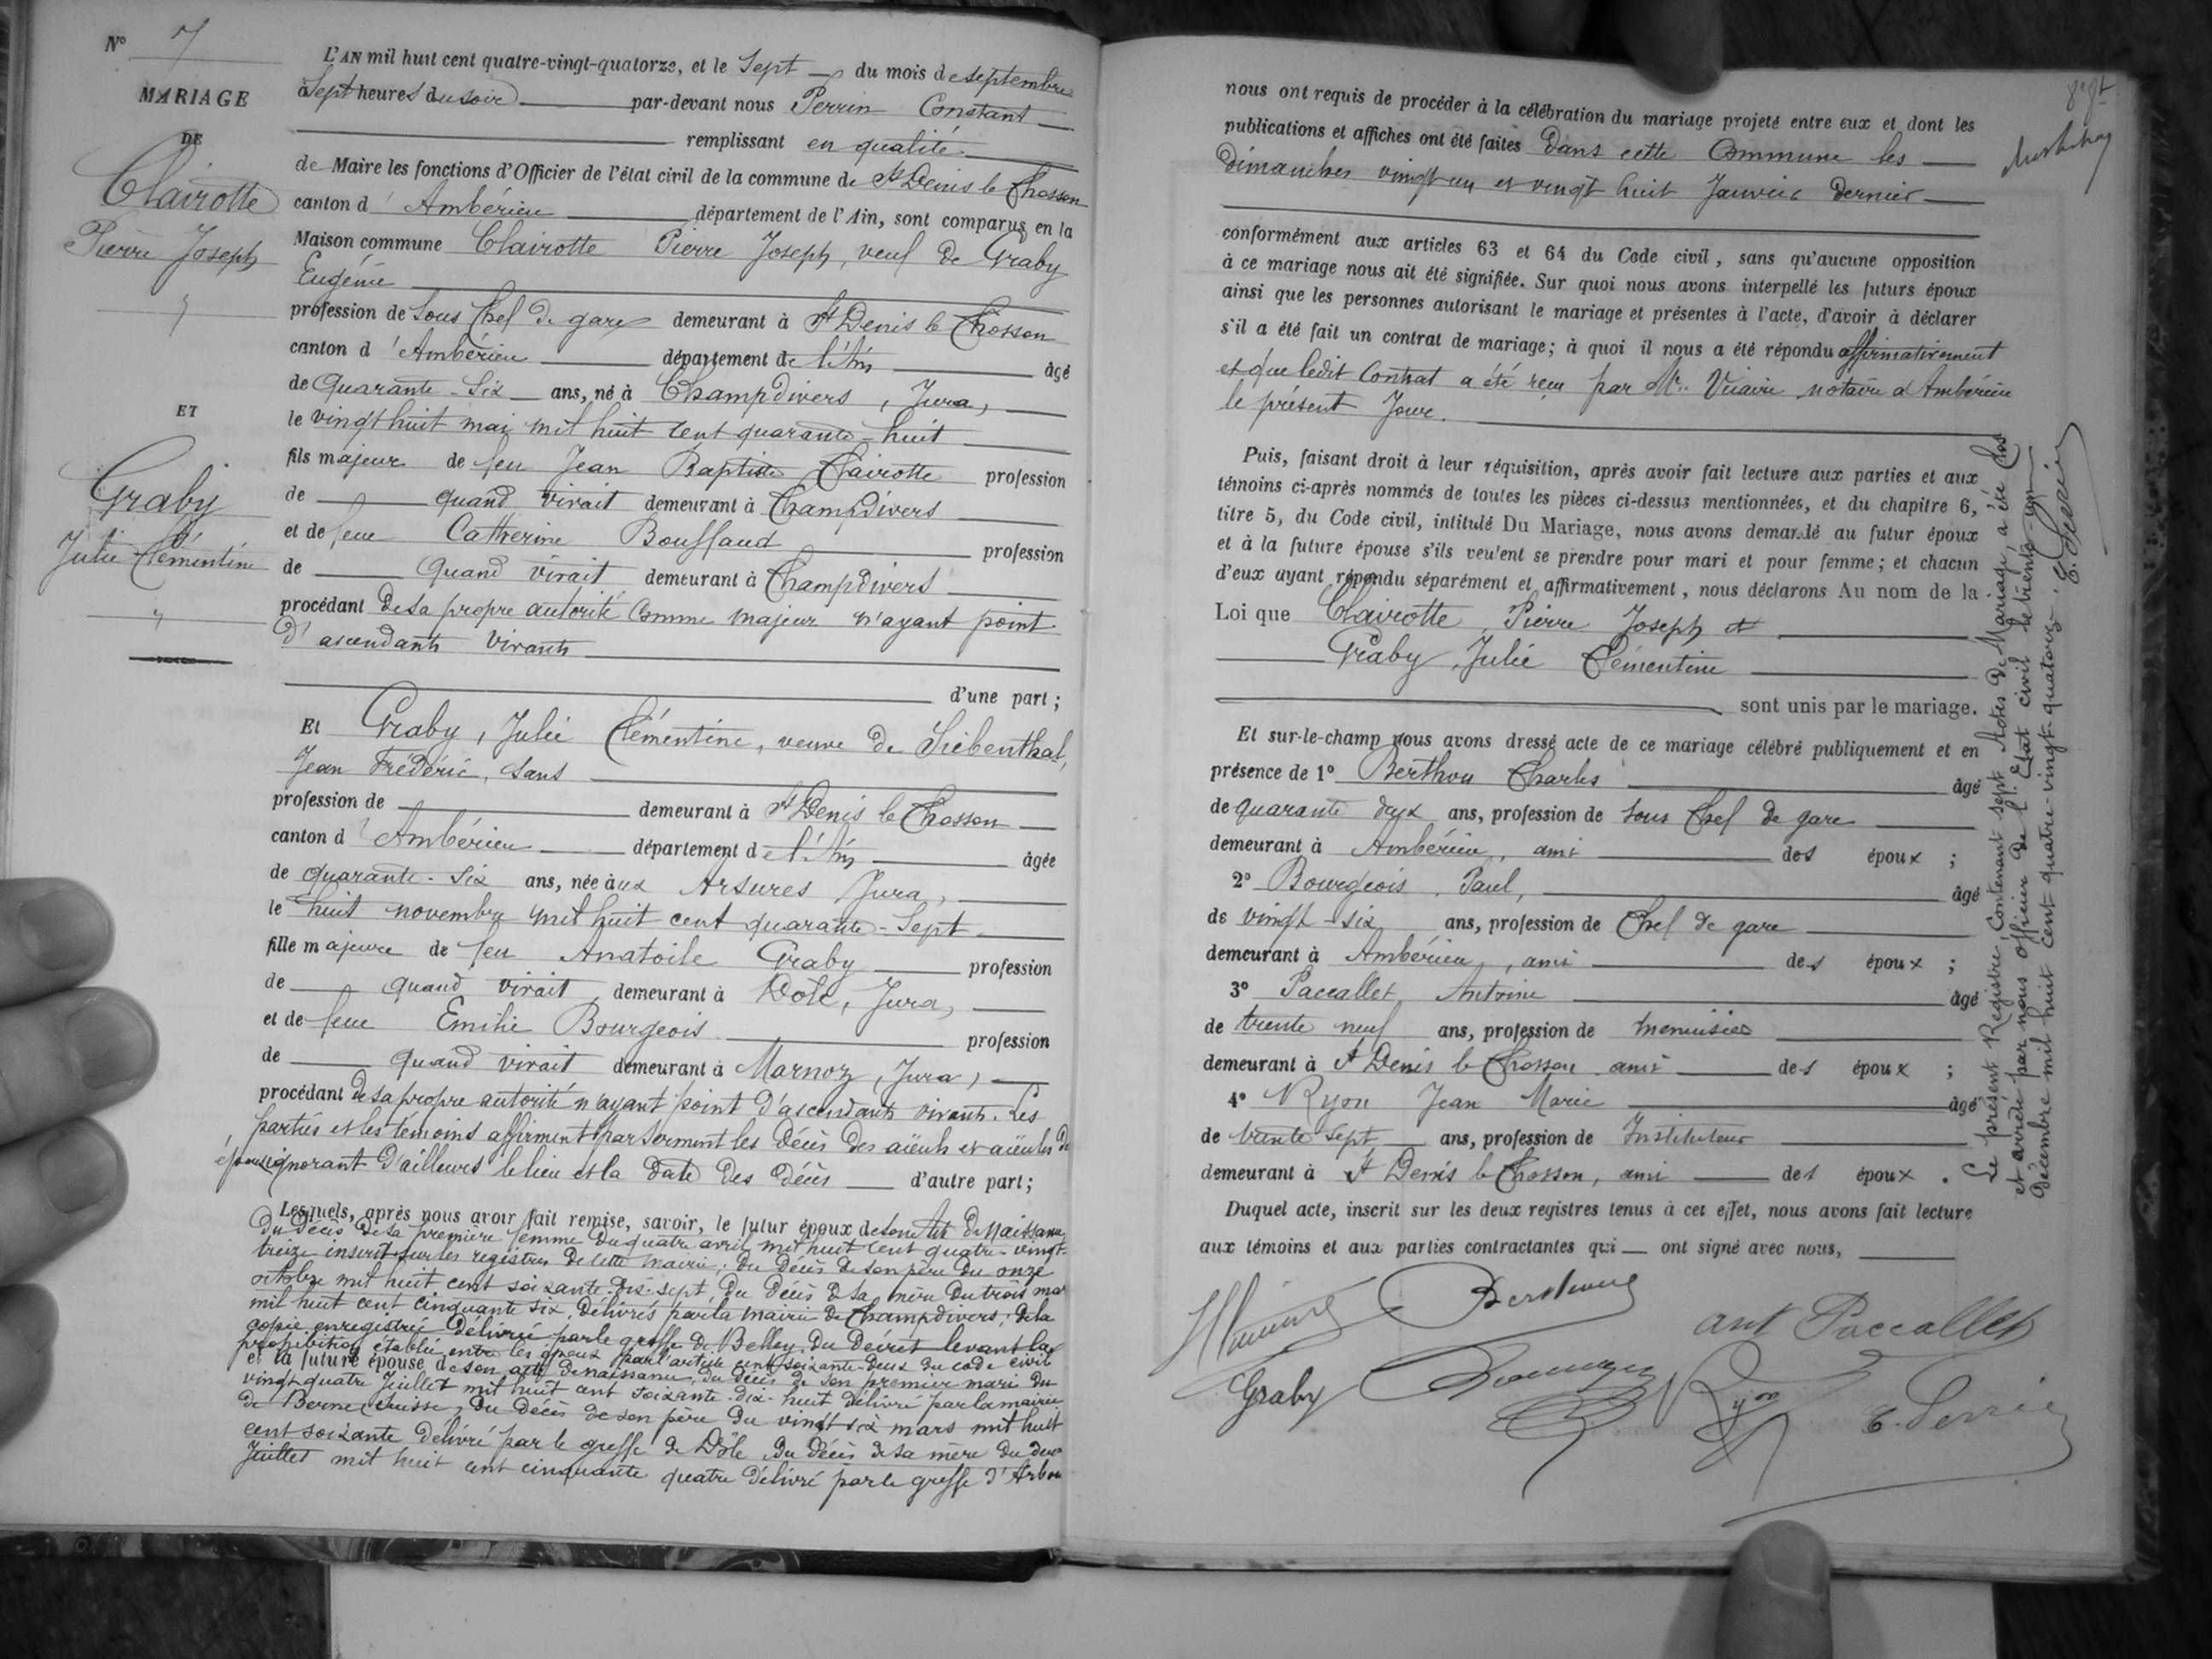 N° 7
MARIAGE
DE
Clairotte
Pierre Joseph
"
ET
Graby
Julie Clémentine
"
L'AN mil huit cent quatre-vingt-quatorze, et le Sept du mois de septembre
à Sept heures du soir par-devant nous Perrin Constant
remplissant en qualité
de Maire les fonctions d'Officier de l'état civil de la commune de St Denis le Chosson
canton d'Ambérieu département de l'Ain, sont comparus en la
Maison commune Clairotte Pierre Joseph, veuf de Graby
Eugénie
profession de Sous Chef de gare demeurant à St Denis le Chosson
canton d'Ambérieu département de l'Ain âgé
de Quarante-Six ans, né à Champdivers, Jura,
le vingt huit mai mil huit cent quarante-huit
fils majeur de feu Jean Baptiste Clairotte profession
de quand vivait demeurant à Champdivers
et de feue Catherine Bouffaud profession
de Quand vivait demeurant à Champdivers
procédant de sa propre autorité comme majeur n'ayant point
d'ascendants vivants
d'une part;
Et Graby, Julie Clémentine, veuve de Siebenthal,
Jean Frédéric, sans
profession de demeurant à St Denis le Chosson
canton d'Ambérieu département de l'Ain âgée
de quarante-Six ans, née aux Arsures Jura,
le huit novembre mil huit cent quarante-Sept
fille majeure de feu Anatoile Graby profession
de quand vivait demeurant à Dole, Jura,
et de feue Emilie Bourgeois profession
de quand vivait demeurant à Marnoz, (Jura)
procédant de sa propre autorité n'ayant point d'ascendants vivants. Les
parties et les témoins affirment par serment les décès des aïeuls et aïeules de
épouse ignorant d'ailleurs le lieu et la date des décès d'autre part;
Lesquels, après nous avoir fait remise, savoir, le futur époux de son acte de naissance
du décès de sa première femme du quatre avril mil huit cent quatre-vingt-
treize inscrit sur les registres de cette mairie; du décès de son père du onze
octobre mil huit cent soixante-dix-sept, du décès de sa mère du trois mai
mil huit cent cinquante six, délivrés par la mairie de Champdivers; de la
copie enregistrée délivrée par le greffe de Belley du décret levant la
prohibition établie entre les époux par l'article cent soixante-deux du code civil
et la future épouse de son acte de naissance, du décès de son premier mari du
vingt quatre Juillet mil huit cent soixante-dix-huit délivré par la mairie
de Berne (Suisse), du décès de son père du vingt six mars mil huit
cent soixante délivré par le greffe de Dôle, du décès de sa mère du deux
Juillet mil huit cent cinquante quatre délivré par le greffe d'Arbois
nous ont requis de procéder à la célébration du mariage projeté entre eux et dont les
publications et affiches ont été faites dans cette Commune les
dimanches vingt un et vingt huit Janvier dernier
conformément aux articles 63 et 64 du Code civil, sans qu'aucune opposition
à ce mariage nous ait été signifiée. Sur quoi nous avons interpellé les futurs époux
ainsi que les personnes autorisant le mariage et présentes à l'acte, d'avoir à déclarer
s'il a été fait un contrat de mariage; à quoi il nous a été répondu affirmativement
et que ledit Contrat a été reçu par Me notaire à Ambérieu
le présent Jour.
Puis, faisant droit à leur réquisition, après avoir fait lecture aux parties et aux
témoins ci-après nommés de toutes les pièces ci-dessus mentionnées, et du chapitre 6,
titre 5, du Code civil, intitulé Du Mariage, nous avons demandé au futur époux
et à la future épouse s'ils veulent se prendre pour mari et pour femme; et chacun
d'eux ayant répondu séparément et affirmativement, nous déclarons Au nom de la
Loi que Clairotte, Pierre Joseph et
Graby, Julie Clémentine
sont unis par le mariage.
Et sur-le-champ nous avons dressé acte de ce mariage célébré publiquement et en
présence de 1° Berthou Charles âgé
de quarante deux ans, profession de Sous Chef de gare
demeurant à Ambérieu, ami des époux;
2° Bourgeois, Paul, âgé
de vingt-six ans, profession de Chef de gare
demeurant à Ambérieu, ami des époux;
3° Paccallet, Antoine âgé
de trente neuf ans, profession de menuisier
demeurant à St Denis le Chosson ami des époux;
4° Ryon Jean Marie âgé
de trente sept ans, profession de Instituteur
demeurant à St Denis le Chosson, ami des époux.
Duquel acte, inscrit sur les deux registres tenus à cet effet, nous avons fait lecture
aux témoins et aux parties contractantes qui ont signé avec nous,
ant Paccallet
Graby Ryon C. Perrin
Le présent Registre, Contenant sept Actes de Mariage, a été clos
et arrêté par nous officier de l'Etat civil le trente-un
Décembre mil huit cent quatre-vingt-quatorze. C. Perrin